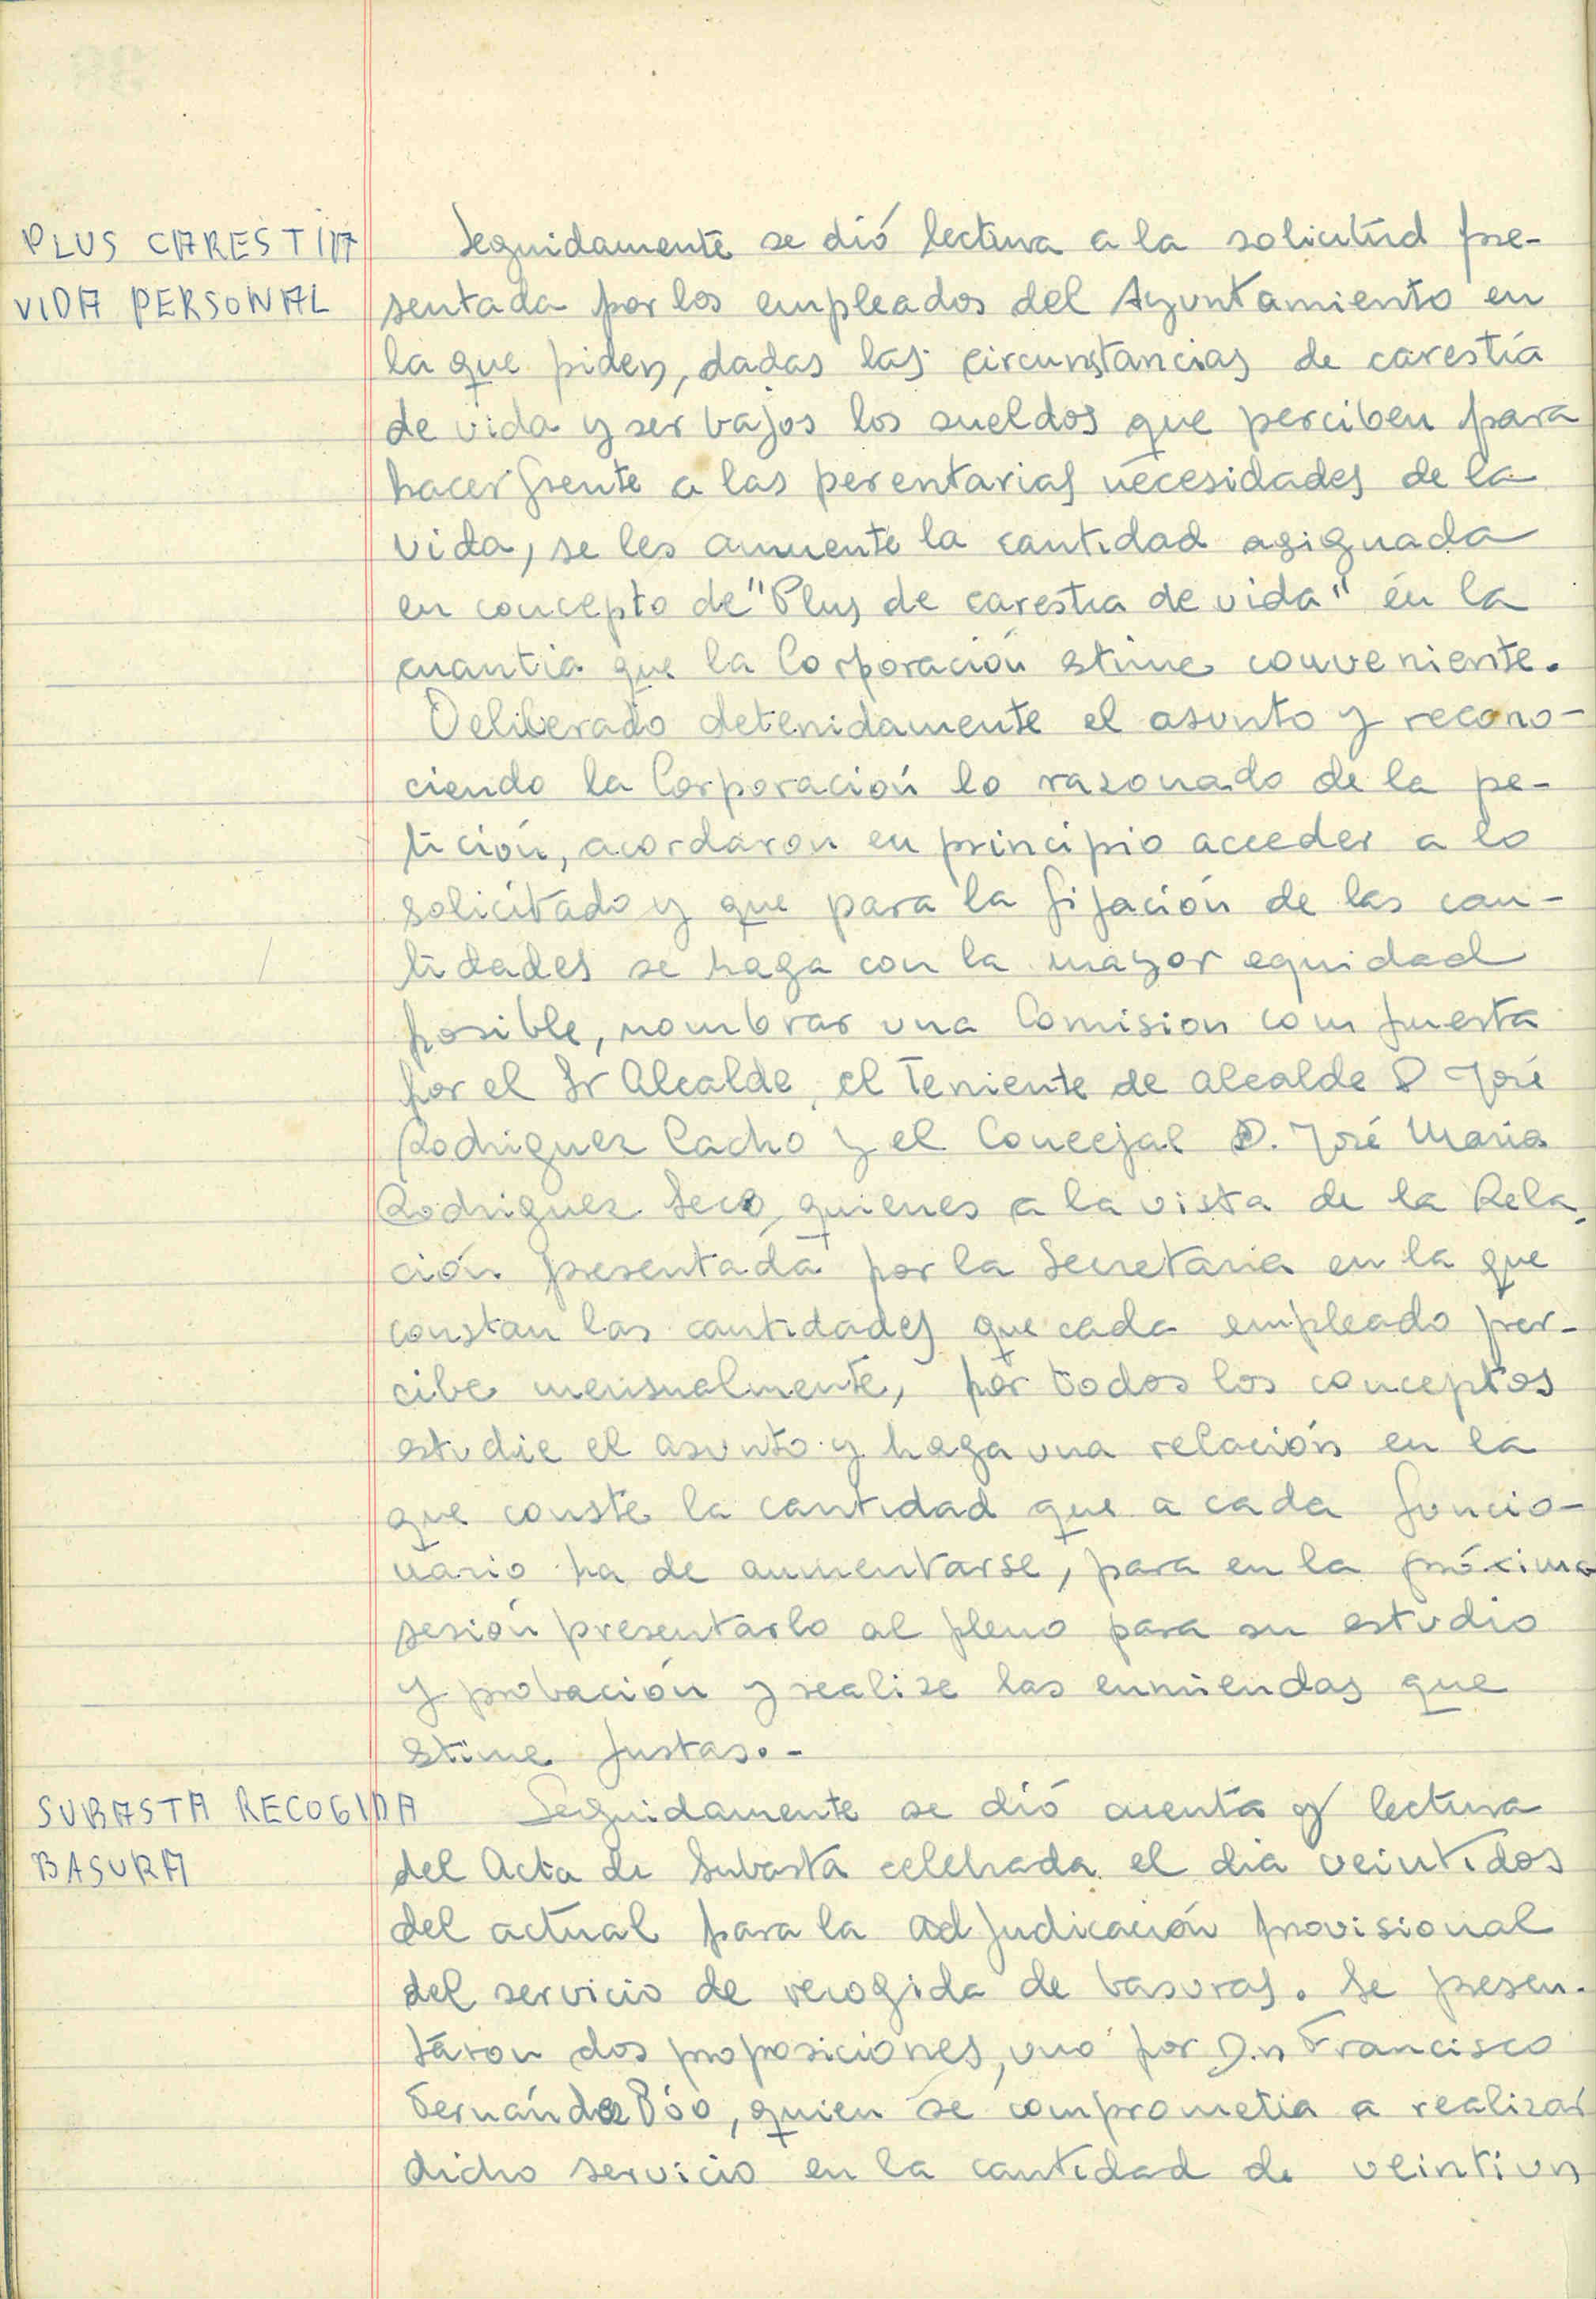 PLUS CARESTÍA
VIDA PERSONAL
Seguidamente se dió lectura a la solicitud pre-
sentada por los empleados del Ayuntamiento en
la que piden, dadas las circunstancias de carestía
de vida y ser bajos los sueldos que perciben para
hacer frente a las perentarias necesidades de la
vida, se les aumente la cantidad asignada
en concepto de "Plus de carestia de vida" en la
cuantia que la Corporación stime conveniente.
Deliberado detenidamente el asunto y recono-
ciendo la Corporación lo razonado de la pe-
tición, acordaron en principio acceder a lo
solicitado y que para la fijación de las can-
tidades se haga con la mayor equidad
posible, nombrar una Comision compuesta
por el Sr Alcalde, el Teniente de alcalde D José
Rodriguez Cacho y el Concejal D. José Maria
Rodriguez Seco, quienes a la vista de la Rela-
ción presentada por la Secretaria en la que
constan las cantidades que cada empleado per-
cibe mensualmente, por todos los conceptos
estudie el asunto y haga una relación en la
que conste la cantidad que a cada funcio-
nario ha de aumentarse, para en la próxima
sesión presentarlo al pleno para su estudio
y probación y realize las enmiendas que
stime justas.-
SUBASTA RECOGIDA
BASURA
Seguidamente se dió cuenta y lectura
del Acta de Subasta celebrada el dia veintidos
del actual para la adjudicación provisional
del servicio de recogida de basuras. Se presen-
táron dos proposiciones, uno por D.n Francisco
Fernández Póo, quien se comprometia a realizar
dicho servicio en la cantidad de veintiun